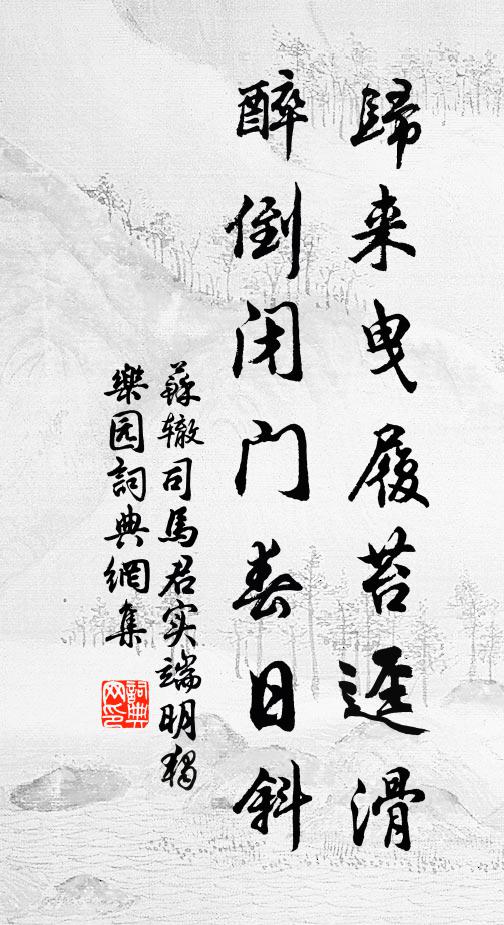 歸来曳履苔逕滑
醉倒闭门春日斜
蘇辙司馬君实端明獨
樂园詞典網集
詞典
网印